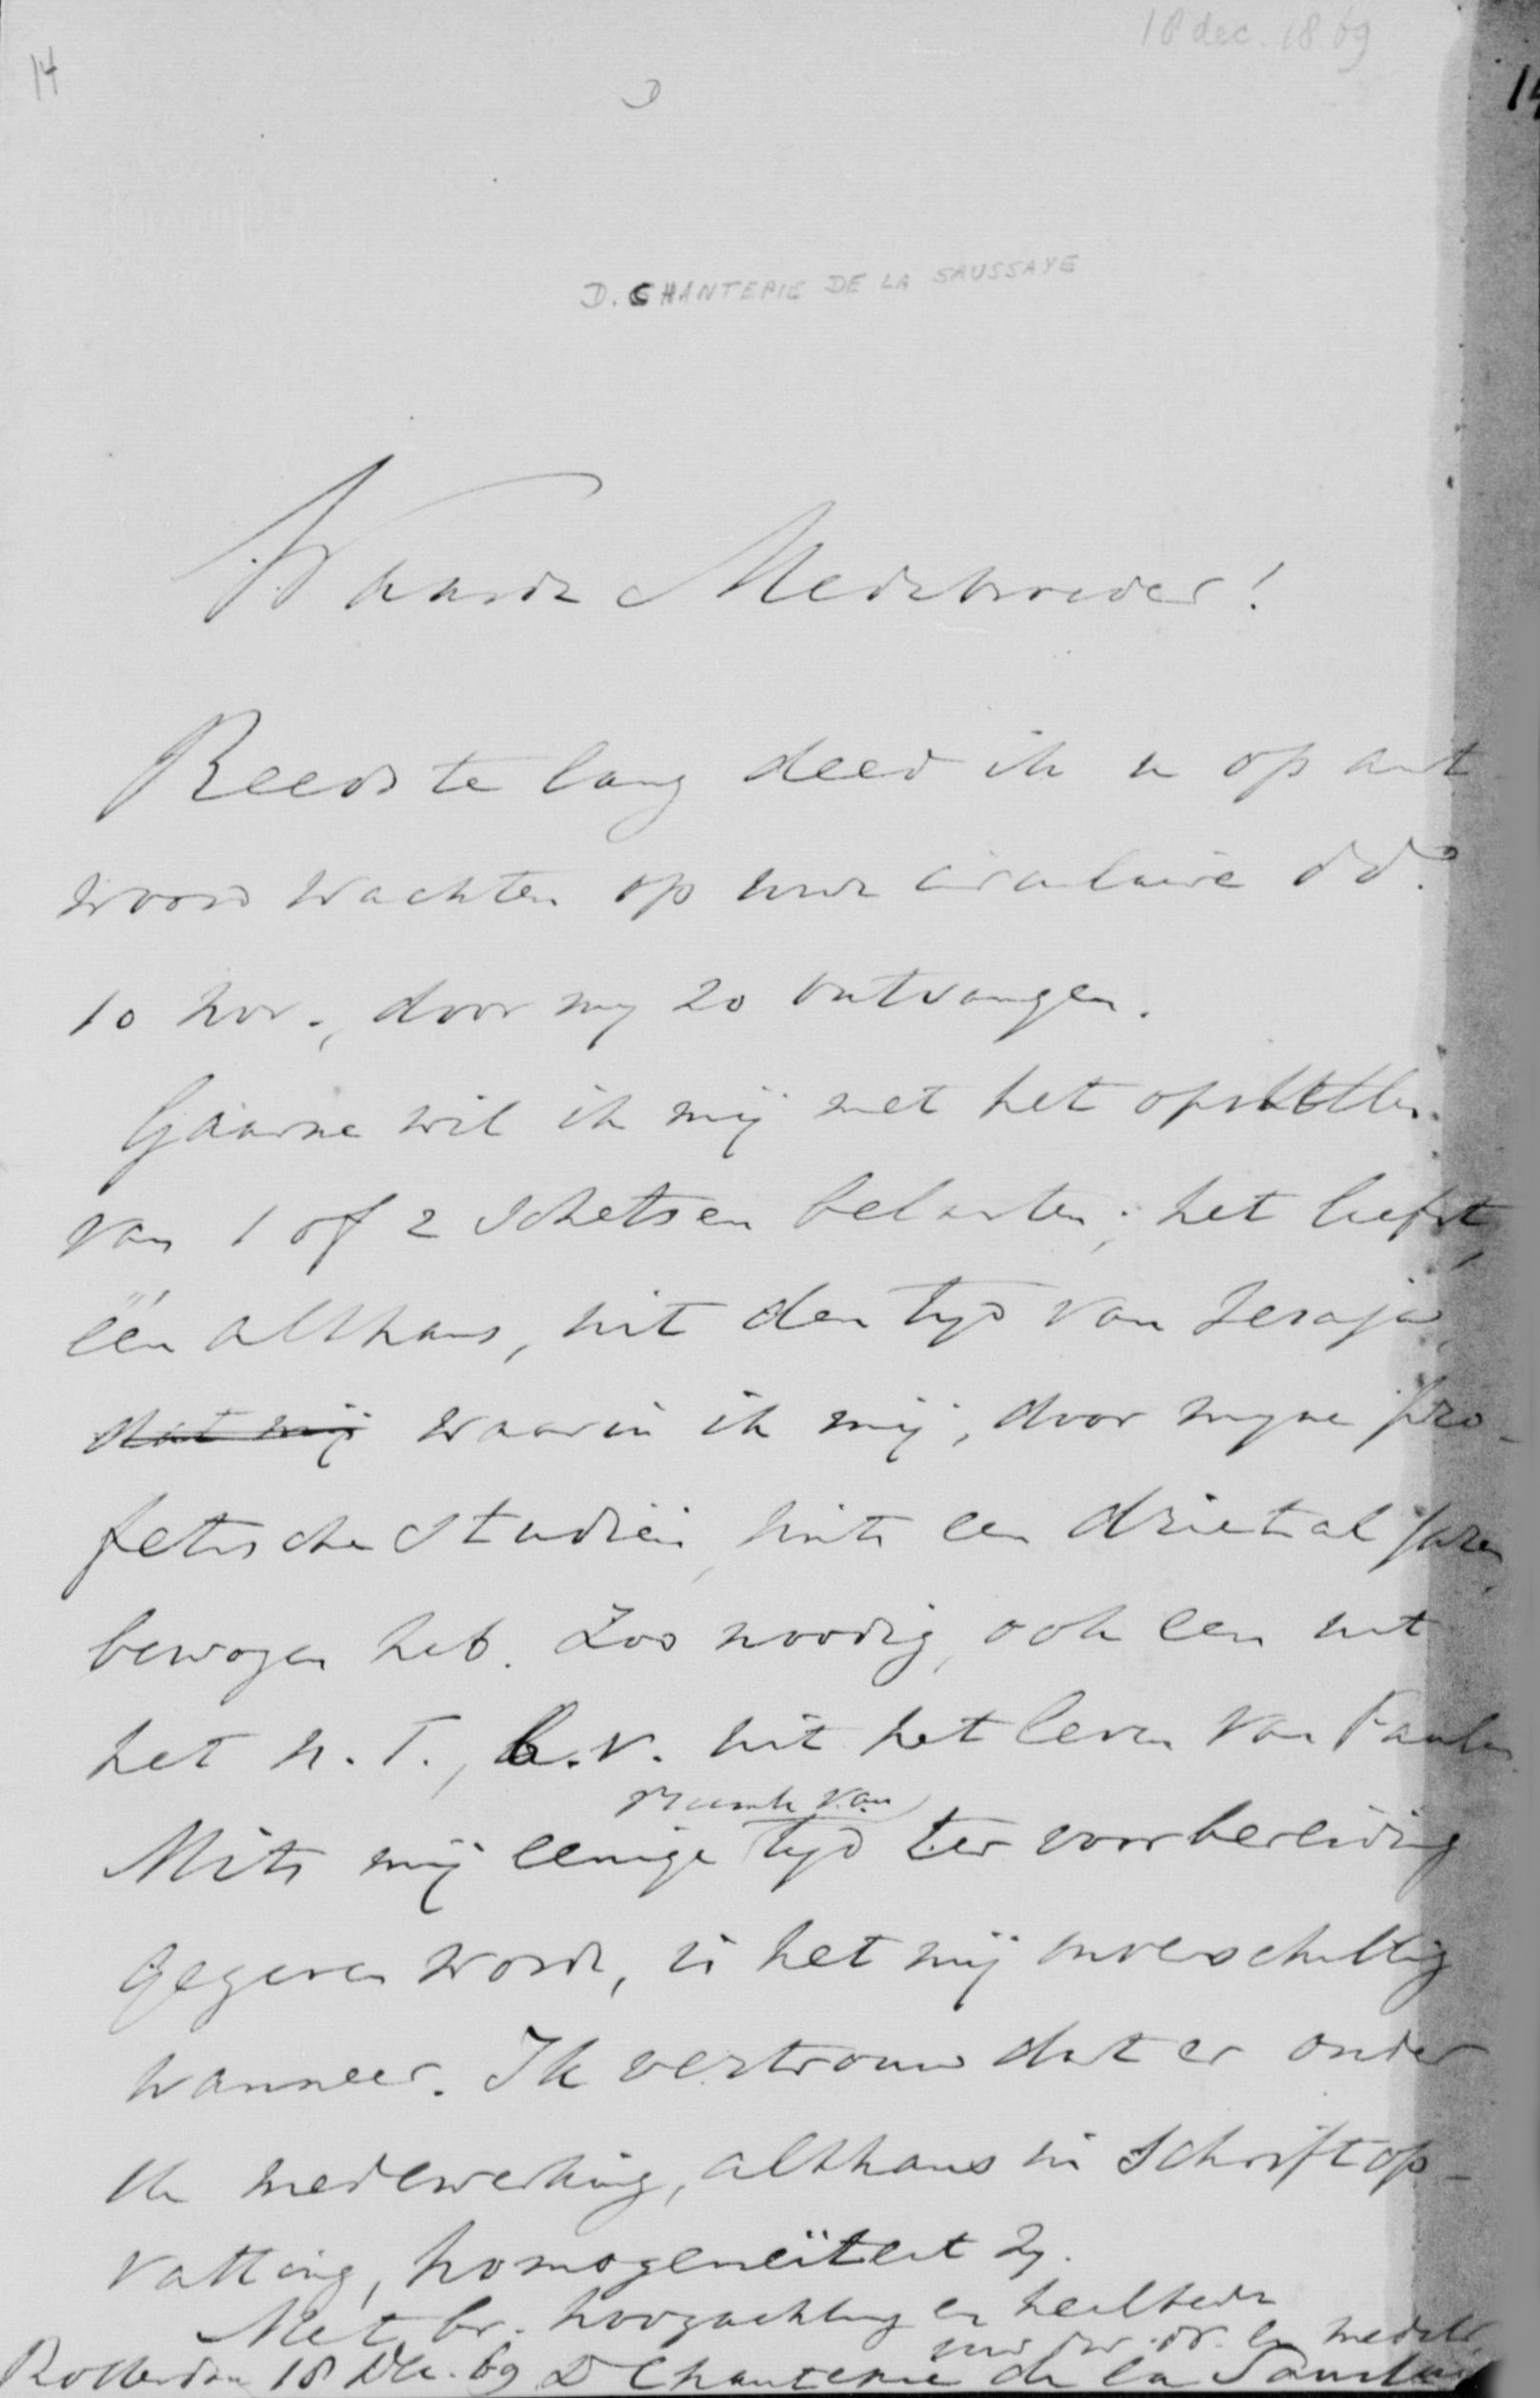 18 dec. 1869
14
14
D
D. CHANTEPIE DE LA SAUSSAYE
Waarde Medebroeder!
Reeds te lang deed ik u op ant
woord wachten op uwe circulaire dd.
10 Nov., door my 20 ontvangen.
Gaarne wil ik mij met het opstellen
van 1 of 2 schetsen belasten; het liefst,
één althans, uit den tyd van Jesaja,
dat mij waarin ik mij, door myne pro-
fetische studiën, sints een drietal jaren,
bewogen heb. Zoo noodig, ook een uit
het N.T., b.v. uit het leven van Paulus
ruimte van
Mits mij eenige tyd ter voorbereiding
gegeven worde, is het mij onverschillig
wanneer. Ik vertrouw dat er onder
de medewerking, althans in Schriftop-
vatting, homogeneïteit zy.
Met br. hoogachting en heilbede
uw dw. dr. en medebr.
Rotterdam 18 Dec. 69 D Chantepie de la Saussaye